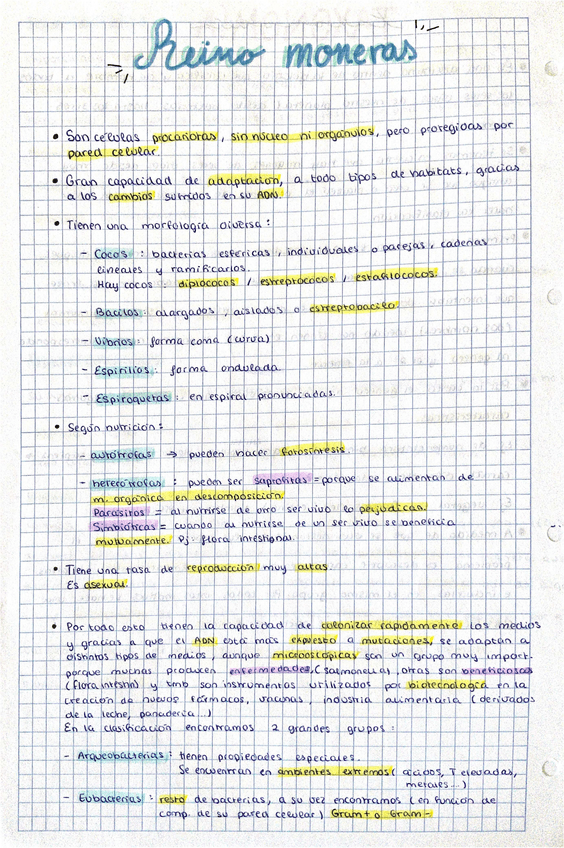 Reino moneras
• Son células procariotas, sin núcleo ni orgánulos, pero protegidas por
pared celular.
• Gran capacidad de adaptación, a todo tipos de habitats, gracias
a los cambios sufridos en su ADN.
• Tienen una morfología diversa:
- Cocos: bacterias esféricas, individuales o parejas, cadenas
lineales y ramificarlos.
Hay cocos: diplococos / estreptococos / estafilococos.
- Bacilos: alargados, aislados o estreptobacilo.
- Vibrios: forma coma (curva)
- Espirilios: forma ondulada.
- Espiroquetas: en espiral pronunciadas.
• Según nutrición:
- autótrofas → pueden hacer fotosíntesis.
- heterótrofas: pueden ser saprofitas = porque se alimentan de
m. orgánica en descomposición.
Parásitos = al nutrirse de otro ser vivo lo perjudican.
Simbióticas = cuando al nutrirse de un ser vivo se beneficia
mutuamente. Pj: flora intestional.
• Tiene una tasa de reproducción muy altas.
Es asexual.
• Por todo esto tienen la capacidad de colonizar rapidamente los medios
y gracias a que el ADN está más expuesto a mutaciones, se adaptan a
distintos tipos de medios, aunque microscópicas son un grupo muy import.
porque muchas producen enfermedades, (salmonella), otras son beneficiosas
(flora intestin) y tmb son instrumentos utilizados por biotecnología en la
creación de nuevos fármacos, vacunas, industria alimentaria (derivados
de la leche, panadería...)
En la clasificación encontramos 2 grandes grupos:
- Arqueobacterias: tienen propiedades especiales.
Se encuentran en ambientes extremos (ácidos, T elevadas,
metales...)
- Eubacterias: resto de bacterias, a su vez encontramos (en función de
comp. de su pared celular) Gram+ o Gram-